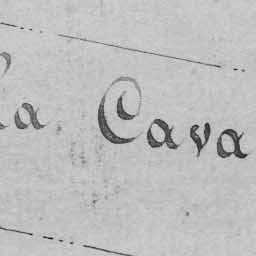 la Cava